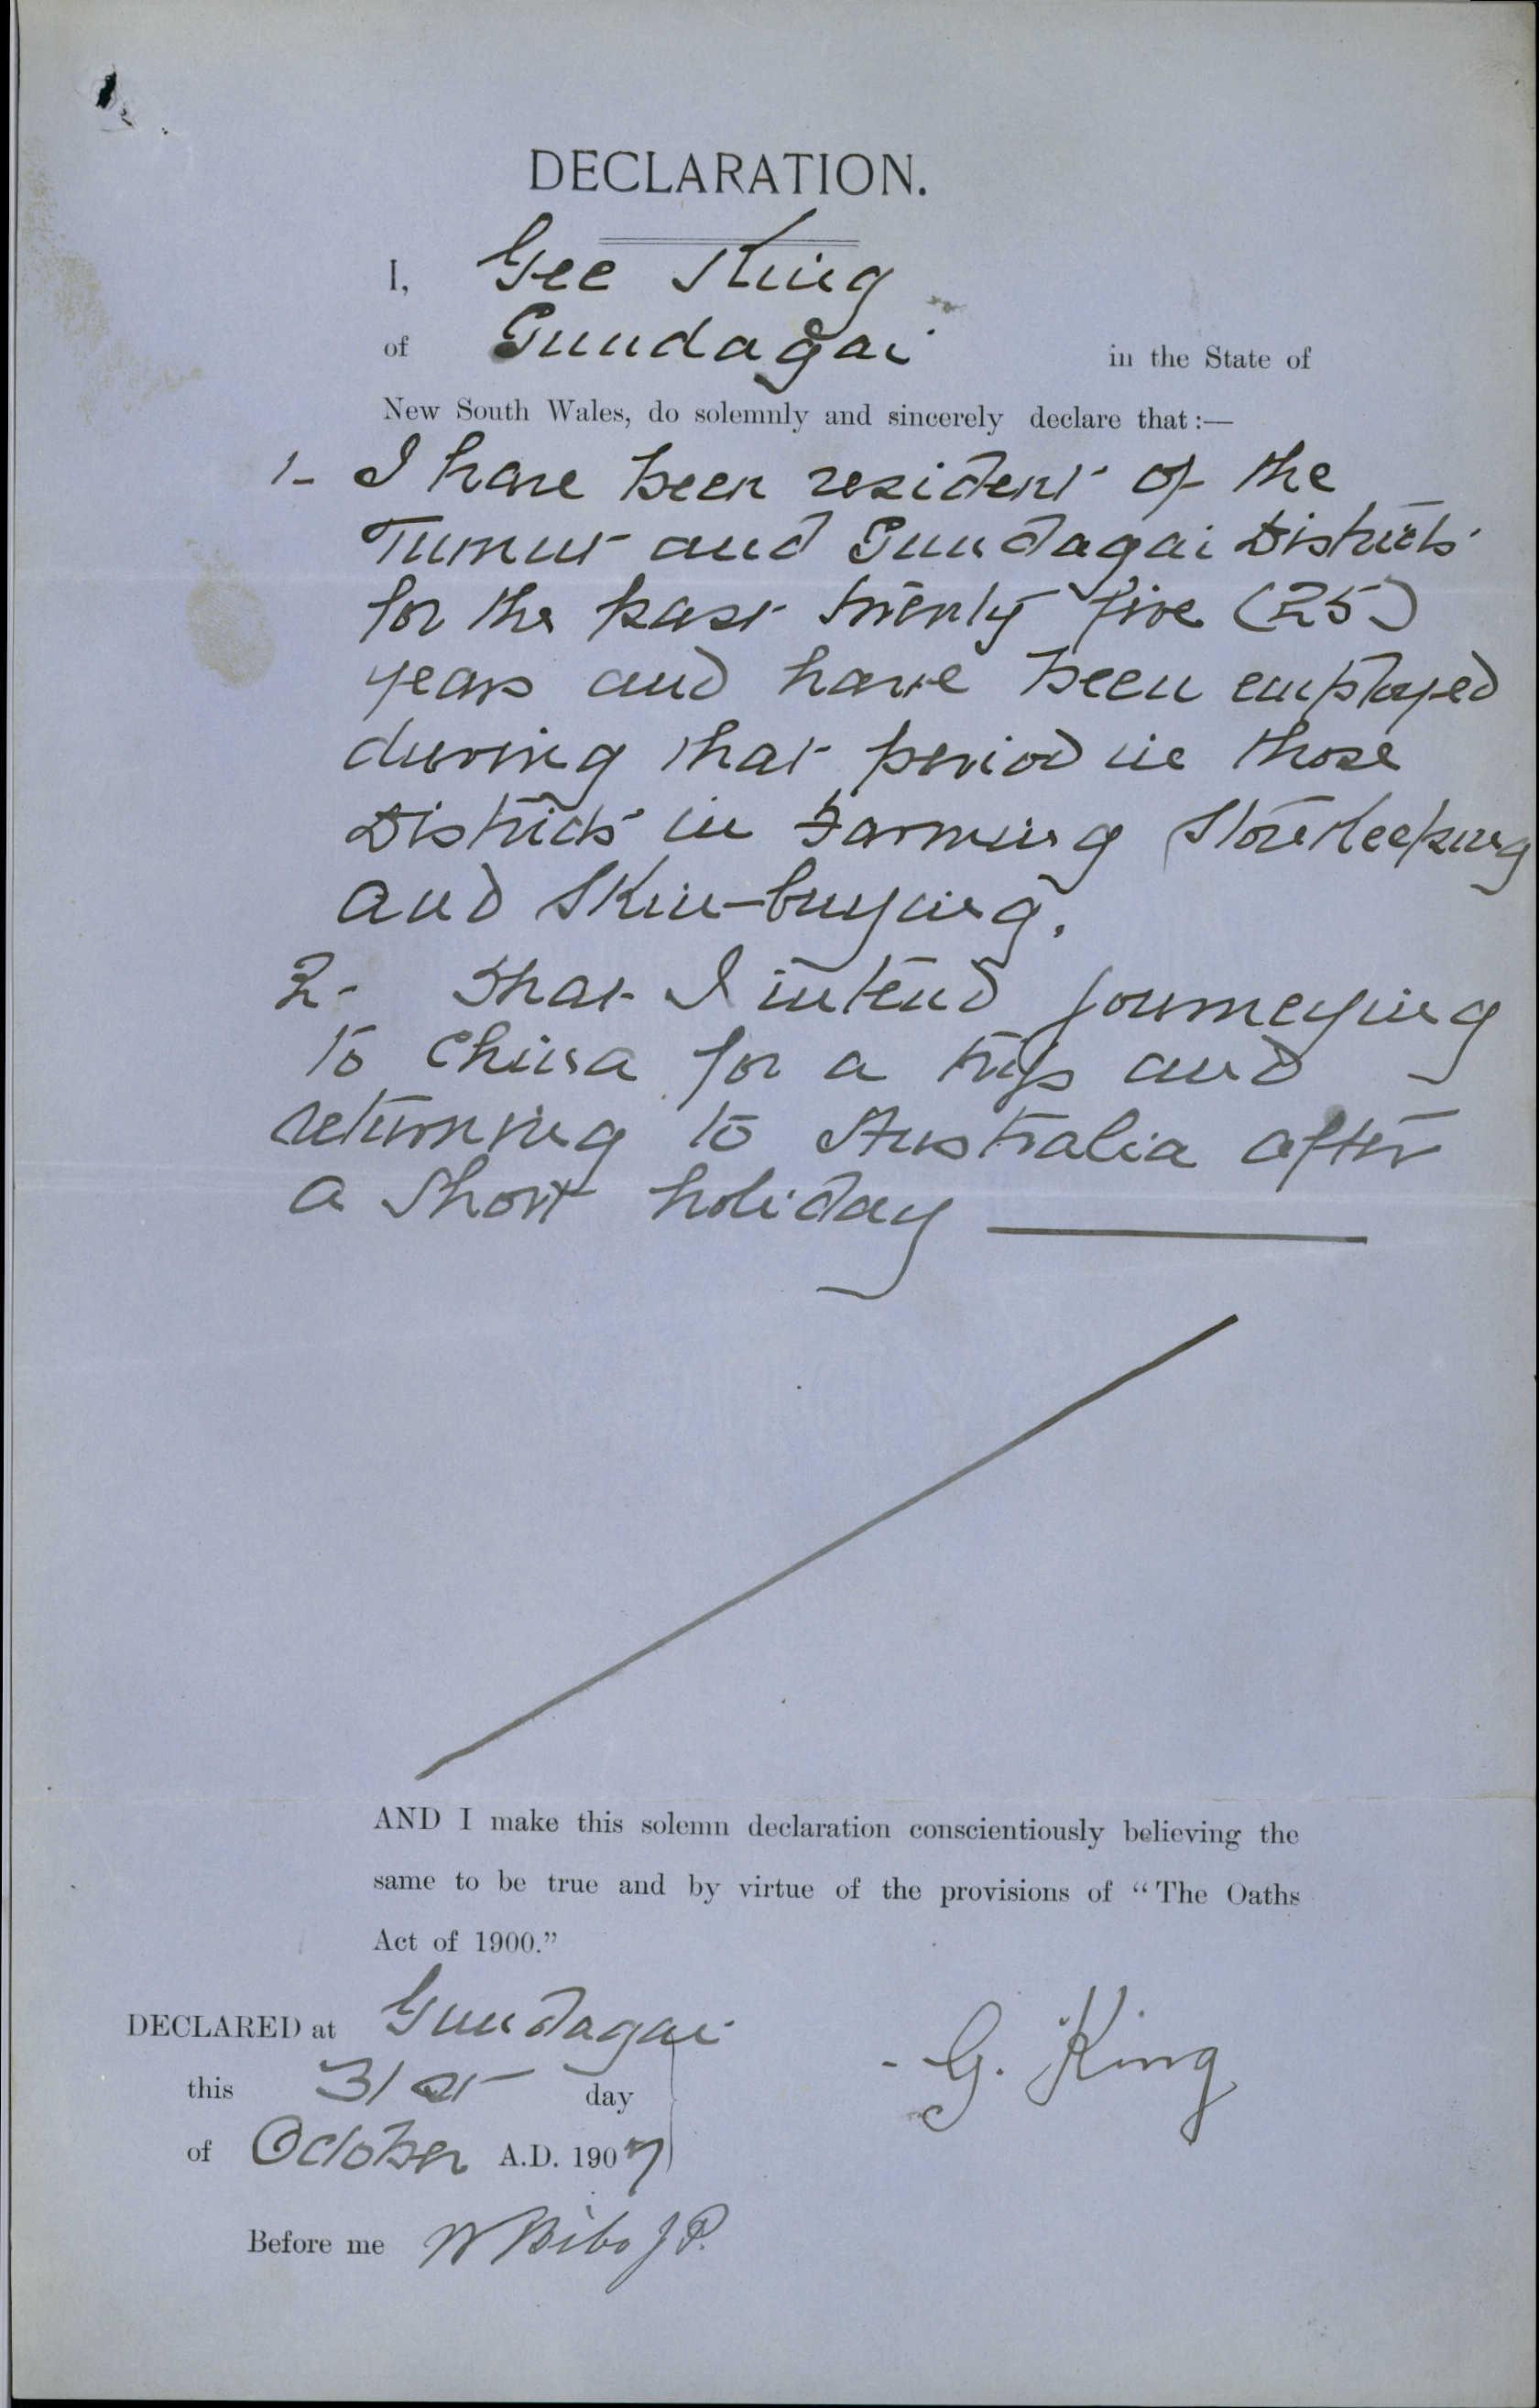 DECLARATION.
I, Gee King
of Gundagai in the State of
New South Wales, do solemnly and sincerely declare that :—
1- I have been resident of the
Tumut and Gundagai Districts
for the past twenty five (25)
years and have been employed
during that period in those
Districts in Farming Storekeeping
and Skin-buying.
2- That I intend journeying
to China for a trip and
returning to Australia after
a short holiday
AND I make this solemn declaration conscientiously believing the
same to be true and by virtue of the provisions of “The Oaths
Act of 1900.”
DECLARED at Gundagai
this 31st day
of October A.D. 1907
- G. King
Before me W Bibo J.P.